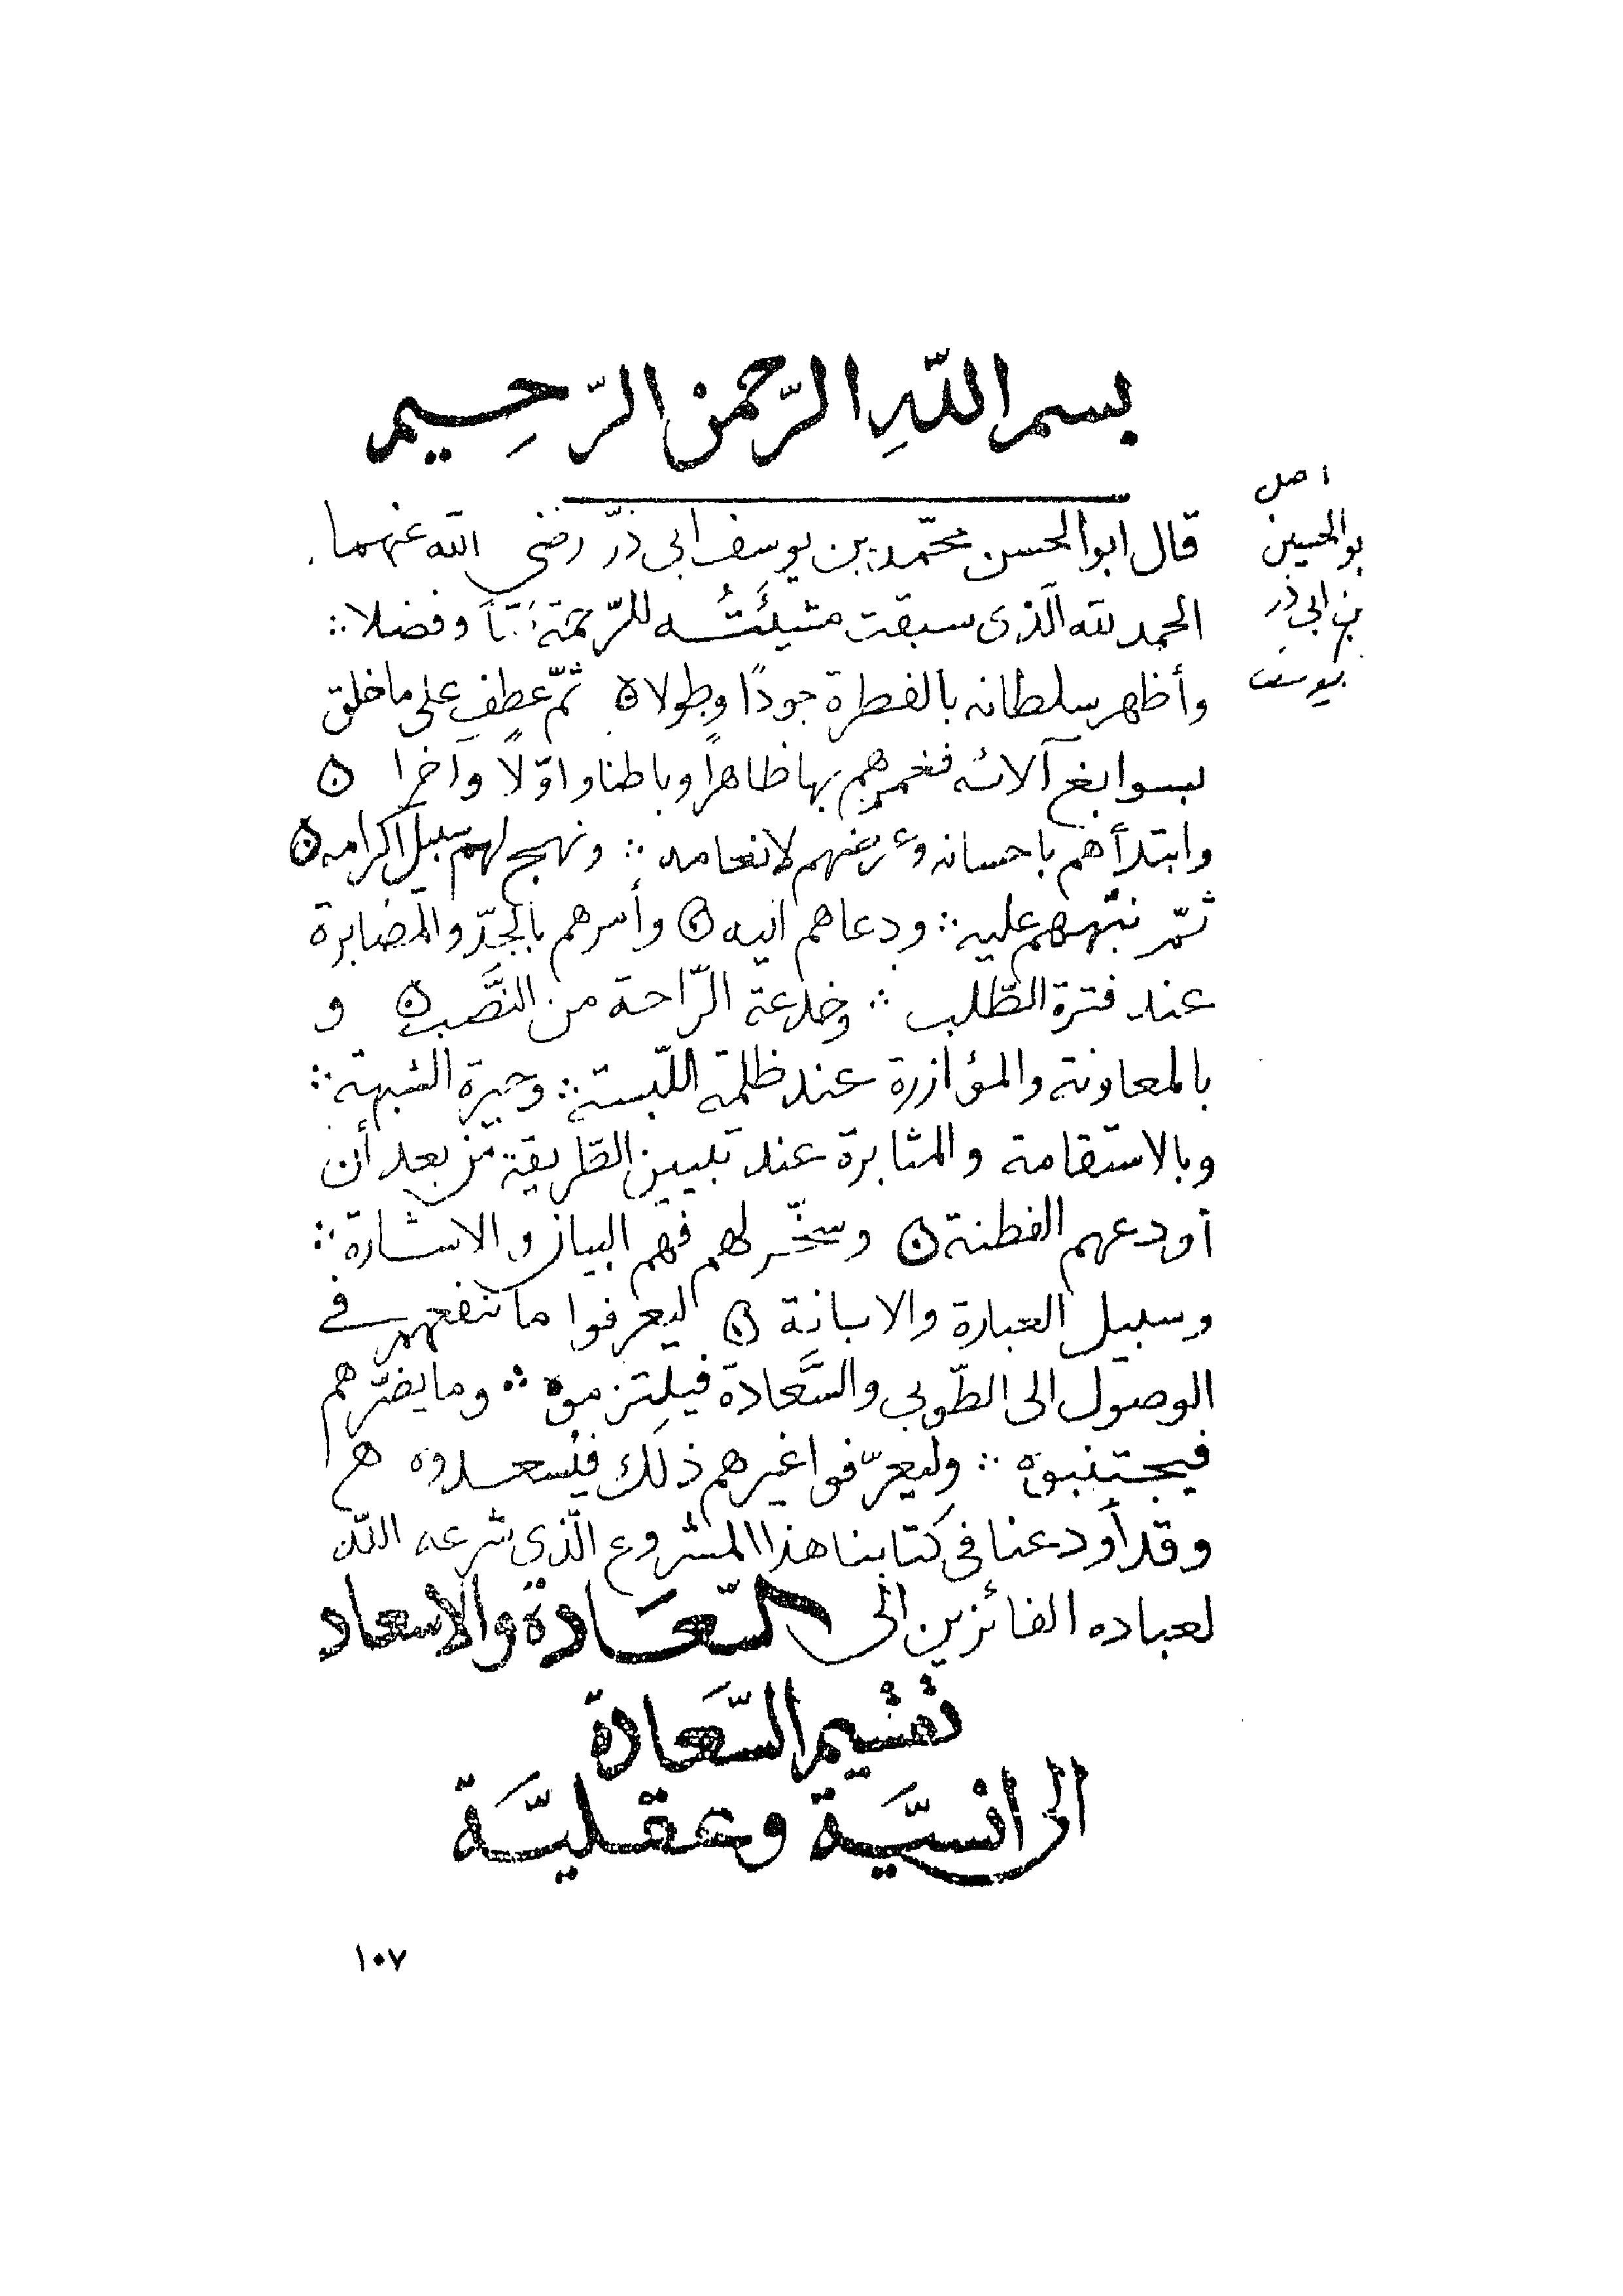 بسم اللّهِ الرّحمن الرّحِيم
قال ابوالحسن محمّد بن يوسف ابى ذرّ رضى اللّه عنهما.
الحمد للّه الّذى سبقت مشيئَتُه للرّحمة وفضلا ∴
وأظهر سلطانه بالفطرة جودًا وطولا ه ثمّ عطف على ما خلق
بسوابغ آلائه فغمرهم بها ظاهراً وباطنا واوّلاً وآخرا ه
وابتدأهم باحسانه وعرضهم لانعامه ∴ ونهج لهم سبيل اكرامه ه
ثمّ نبّههم عليه ∴ ودعاهم اليه ه وأمرهم بالجدّ والمصابرة
عند فترة الطّلب ∴ وخدعة الرّاحة من النَّصب ه و
بالمعاونة والمؤازرة عند ظلمة اللّبسة ∴ وحيرة الشبهة ∴
وبالاستقامة والمثابرة عند تبيين الطّريقة من بعد أن
أودعهم الفطنة ه وسخّر لهم فهم البيان والاشارة ∴
وسبيل العبارة والابانة ه ليعرفوا ما ينفعهم في
الوصول الى الطّوبى والسَّعادة فيلتزموه ∴ وما يضرّهم
فيجتنبوه ∴ وليعرّفوا غيرهم ذلك فيُسعدوه هم
وقد أودعنا فى كتابنا هذا المشروع الّذى شرعه اللّه
لعباده الفائزين الى السّعَادة والاسعاد
تقسيم السَّعادة
الى انسيَّة وعقليَّة
اصل
بوالحسين
بن ابى ذر
يوسف
١٠٧